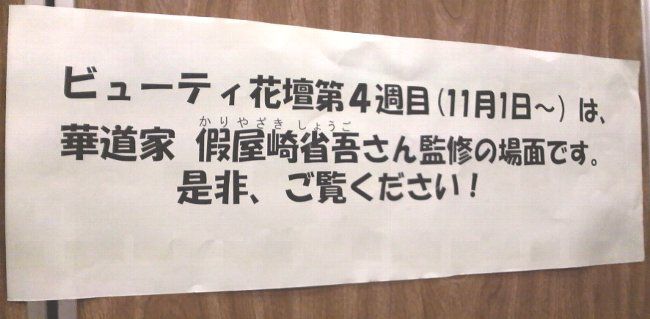 ビューティ花壇第4週目(11月1日～)は、
かりやざき しょうご
華道家 假屋崎省吾さん監修の場面です。
是非、ご覧ください!